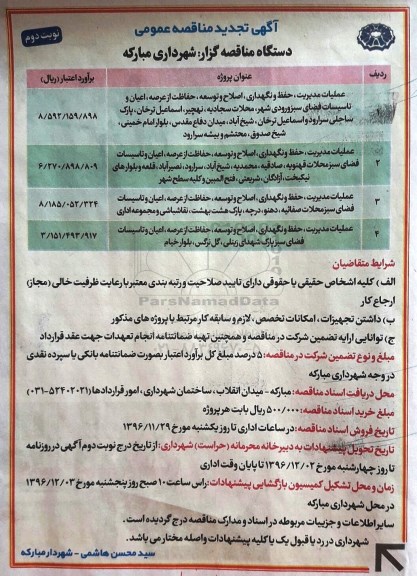 آگهی تجدید مناقصه عمومی
نوبت دوم
دستگاه مناقصه گزار: شهرداری مبارکه
ردیف
عنوان پروژه
برآورد اعتبار (ریال)
عملیات مدیریت، حفظ و نگهداری، اصلاح و توسعه، حفاظت از عرصه، اعیان و
تاسیسات فضای سبز ورودی شهر، محلات سجادیه، نهچیر، اسماعیل ترخان، پارک
ساحلی سرارود و اسماعیل ترخان، شیخ آباد، میدان دفاع مقدس، بلوار امام خمینی،
شیخ صدوق، محتشم و بیشه سرارود
۸/۵۹۲/۱۵۹/۸۹۸
۲
عملیات مدیریت، حفظ و نگهداری، اصلاح و توسعه، حفاظت از عرصه، اعیان و تاسیسات
فضای سبز محلات قهنویه، صادقیه، محمدیه، شیخ آباد، سرارود، نصیرآباد، قلعه و بلوار های
نیکبخت، آزادگان، شریعتی، فتح المبین و کلیه سطح شهر
۶/۲۷۰/۸۹۸/۸۰۹
۳
عملیات مدیریت، حفظ و نگهداری، اصلاح و توسعه، حفاظت از عرصه، اعیان و تاسیسات
فضای سبز محلات صفائیه، دهنو، درچه، پارک هشت بهشت، نقاشباشی و مجموعه اداری
۸/۱۸۵/۰۵۲/۳۲۴
۴
عملیات مدیریت، حفظ و نگهداری، اصلاح و توسعه، حفاظت از عرصه، اعیان و تاسیسات
فضای سبز پارک شهدای زینلی، گل نرگس، بلوار خیام
۳/۱۵۱/۶۹۳/۹۱۷
شرایط متقاضیان
الف) کلیه اشخاص حقیقی یا حقوقی دارای تایید صلاحیت و رتبه بندی معتبر با رعایت ظرفیت خالی (مجاز)
ارجاع کار
ب) داشتن تجهیزات، امکانات تخصص، لازم و سابقه کار مرتبط با پروژه های مذکور
ج) توانایی ارایه تضمین شرکت در مناقصه و همچنین تهیه ضمانتنامه انجام تعهدات جهت عقد قرارداد
مبلغ و نوع تضمین شرکت در مناقصه: ۵ درصد مبلغ کل برآورد اعتبار بصورت ضمانتنامه بانکی یا سپرده نقدی
در وجه شهرداری مبارکه
محل دریافت اسناد مناقصه: مبارکه - میدان انقلاب، ساختمان شهرداری، امور قراردادها (۵۲۴۰۲۰۲۱-۰۳۱)
مبلغ خرید اسناد مناقصه: ۵۰۰/۰۰۰ ریال بابت هر پروژه
تاریخ فروش اسناد مناقصه: در ساعات اداری تا روز یکشنبه مورخ ۱۳۹۶/۱۱/۲۹
تاریخ تحویل پیشنهادات به دبیرخانه محرمانه (حراست) شهرداری: از تاریخ درج نوبت دوم آگهی در روزنامه
تا روز چهارشنبه مورخ ۱۳۹۶/۱۲/۰۲ تا پایان وقت اداری
زمان و محل تشکیل کمیسیون بازگشایی پیشنهادات: راس ساعت ۱۰ صبح روز پنجشنبه مورخ ۱۳۹۶/۱۲/۰۳
در محل شهرداری مبارکه
سایر اطلاعات و جزییات مربوطه در اسناد و مدارک مناقصه درج گردیده است.
شهرداری در رد یا قبول یک یا کلیه پیشنهادات واصله مختار می باشد.
سید محسن هاشمی - شهردار مبارکه
ParsNamadData